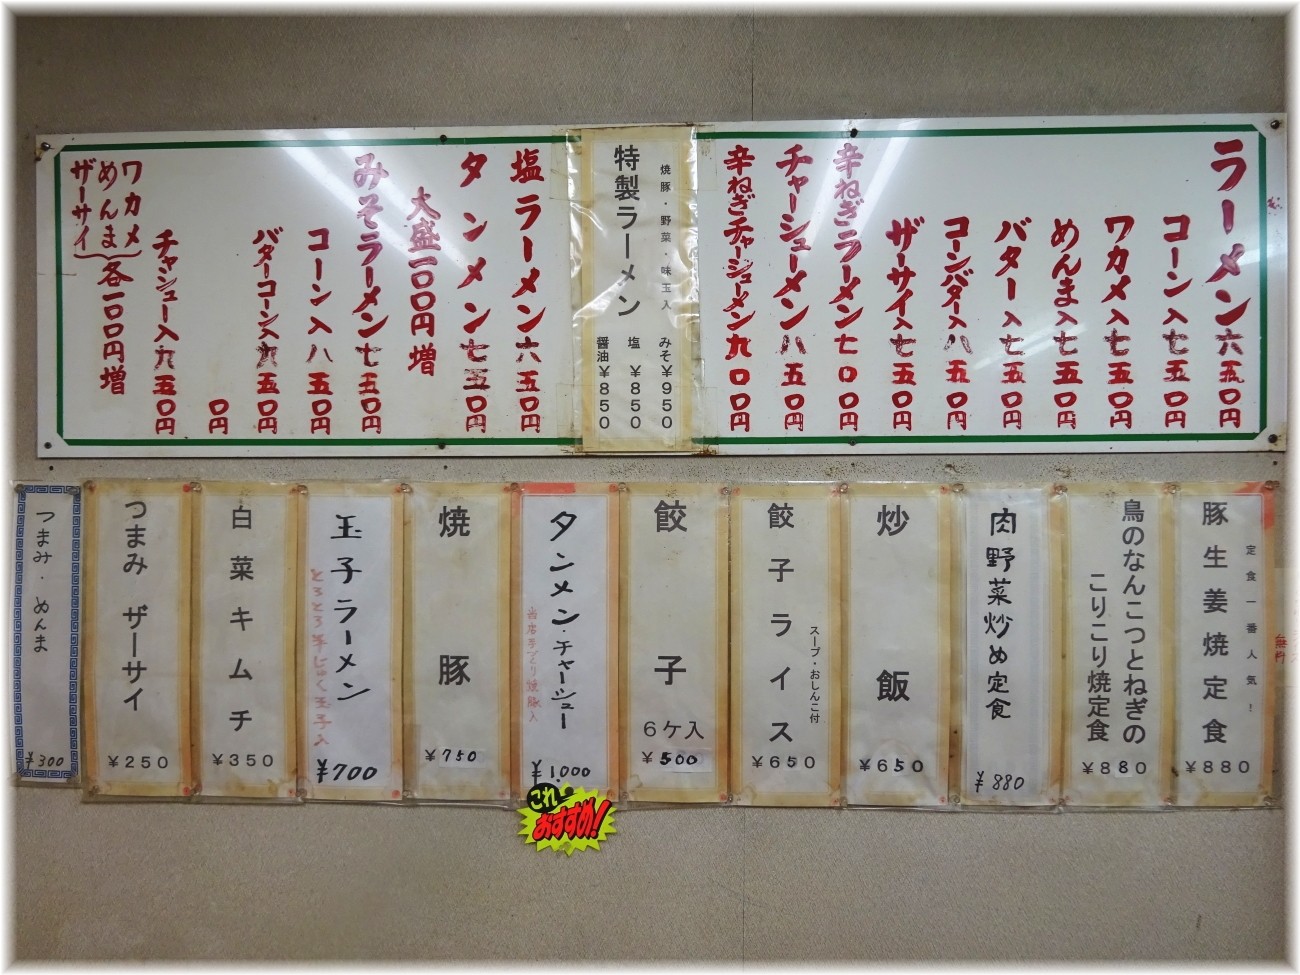 ラーメン六五〇円
コーン入七五〇円
ワカメ入七五〇円
めんま入七五〇円
バター入七五〇円
コーンバター入八五〇円
ザーサイ入七五〇円
辛ねぎラーメン七〇〇円
チャーシューメン八五〇円
辛ねぎチャーシューメン九〇〇円
焼豚・野菜・味玉入
特製ラーメン
みそ¥950
塩¥850
醤油¥850
塩ラーメン六五〇円
タンメン七五〇円
大盛一〇〇円増
みそラーメン七五〇円
コーン入八五〇円
バターコーン入九五〇円
〇円
チャシュー入九五〇円
ワカメ
めんま
ザーサイ
各一〇〇円増
定食一番人気!
豚生姜焼定食
¥880
鳥のなんこつとねぎの
こりこり焼定食
¥880
肉野菜炒め定食
¥880
炒飯
¥650
餃子ライス
スープ・おしんこ付
¥650
餃子
6ケ入
¥500
タンメン・チャーシュー
当店手づくり焼豚入
¥1,000
これ
おすすめ!
焼豚
¥750
玉子ラーメン
とろとろ半じゅく玉子入
¥700
白菜キムチ
¥350
つまみ ザーサイ
¥250
つまみ・めんま
¥300